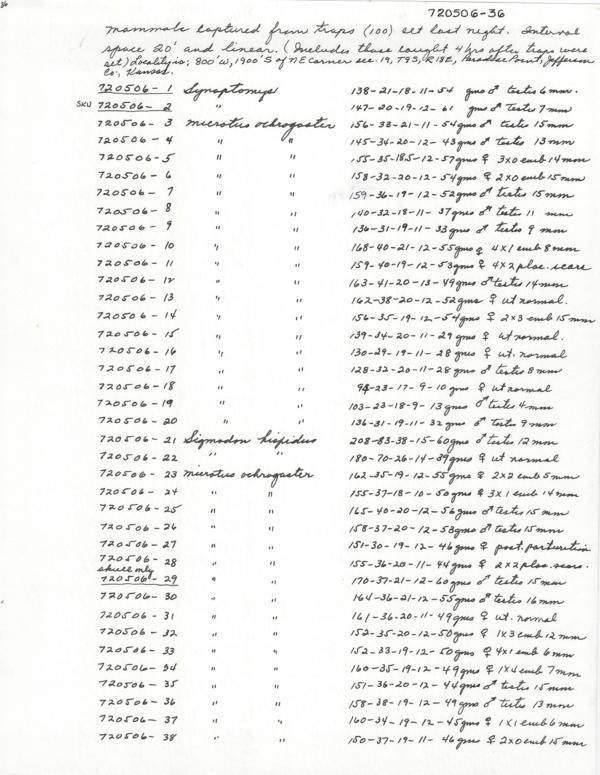 36
720506-36
mammals captured from traps (100) set last night. Interval
space 20' and linear. (Includes those caught 4 hrs after traps were
set) Locality is; 800'W, 1900'S of NE Corner sec. 19, T9S, R18E, Paradise Point, Jefferson
Co., Kansas.
720506-1 Synaptomys 138-21-18-11-54 gms ♂ testes 6mm.
SKU 720506-2 " 147-20-19-12-61 gms ♂ testes 7mm
720506-3 microtus ochrogaster 156-33-21-11-54gms ♂ testes 15mm
720506-4 " " 145-34-20-12-43gms ♂ testes 13mm
720506-5 " " 155-35-18.5-12-57gms ♀ 3x0 emb 14mm
720506-6 " " 158-32-20-12-54gms ♀ 2x0 emb 15mm
720506-7 " " 159-36-19-12-52gms ♂ testes 15mm
720506-8 " " 140-32-18-11-37gms ♂ testes 11 mm
720506-9 " " 136-31-19-11-33gms ♂ testes 9 mm
720506-10 " " 168-40-21-12-55gms ♀ 4x1 emb 8mm
720506-11 " " 159-40-19-12-53gms ♀ 4x2 plac. scars
720506-12 " " 163-41-20-13-49gms ♂ testes 14mm
720506-13 " " 162-38-20-12-52gms ♀ ut normal.
720506-14 " " 156-35-19-12-54gms ♀ 2x3 emb 15mm
720506-15 " " 139-34-20-11-29gms ♀ ut normal.
720506-16 " " 130-29-19-11-28 gms ♀ ut. normal
720506-17 " " 128-32-20-11-28gms ♂ testes 8mm
720506-18 " " 94-23-17-9-10gms ♀ ut normal
720506-19 " " 103-23-18-9-13gms ♂ testes 4mm
720506-20 " " 136-31-19-11-32gms ♂ testes 9mm
720506-21 Sigmodon hispidus 208-83-38-15-60gms ♂ testes 12mm
720506-22 " " 180-70-26-14-39gms ♀ ut normal
720506-23 microtus ochrogaster 162-35-19-12-55gms ♀ 2x2 emb 5mm
720506-24 " " 155-37-18-10-50gms ♀ 3x1 emb 14mm
720506-25 " " 165-40-20-12-56gms ♂ testes 15mm
720506-26 " " 158-37-20-12-53gms ♂ testes 15mm
720506-27 " " 151-30-19-12-46gms ♀ post. parturition
720506-28 " " 155-36-20-11-44gms ♀ 2x2 plac. scars.
skull only
720506-29 " " 170-37-21-12-60gms ♂ testes 15mm
720506-30 " " 164-36-21-12-55gms ♂ testes 16mm
720506-31 " " 161-36-20-11-49gms ♀ ut. normal
720506-32 " " 152-35-20-12-50gms ♀ 1x3 emb 12mm
720506-33 " " 152-33-19-12-50gms ♀ 4x1 emb 6mm
720506-34 " " 160-35-19-12-49gms ♀ 1x4 emb 7mm
720506-35 " " 151-36-20-12-44gms ♂ testes 15mm
720506-36 " " 158-38-19-12-49gms ♂ testes 13mm
720506-37 " " 160-34-19-12-45gms ♀ 1x1 emb 6mm
720506-38 " " 150-37-19-11-46gms ♀ 2x0 emb 15mm